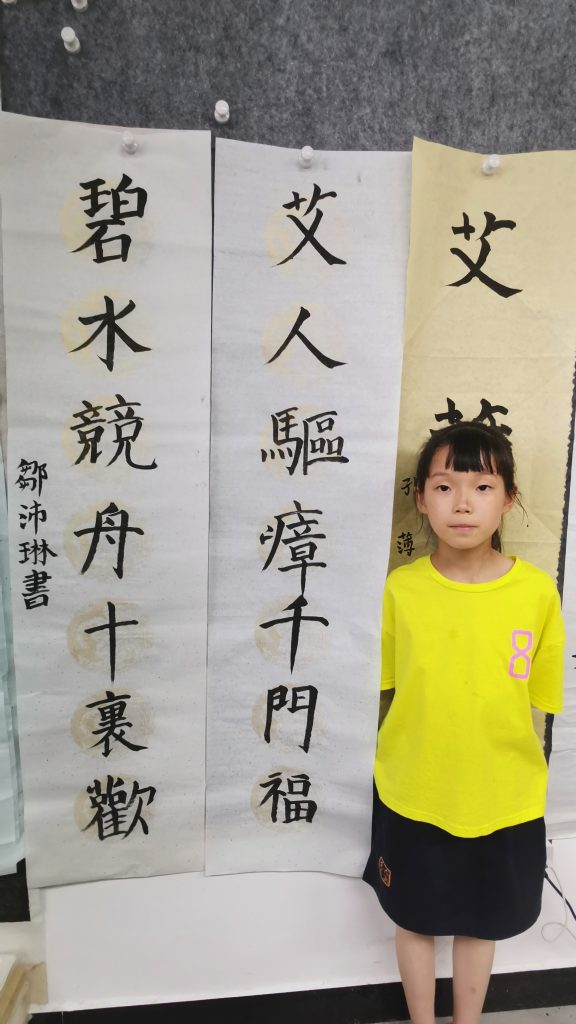 艾
薄
艾人驅瘴千門福
碧水競舟十裏歡
鄒沛琳書
8